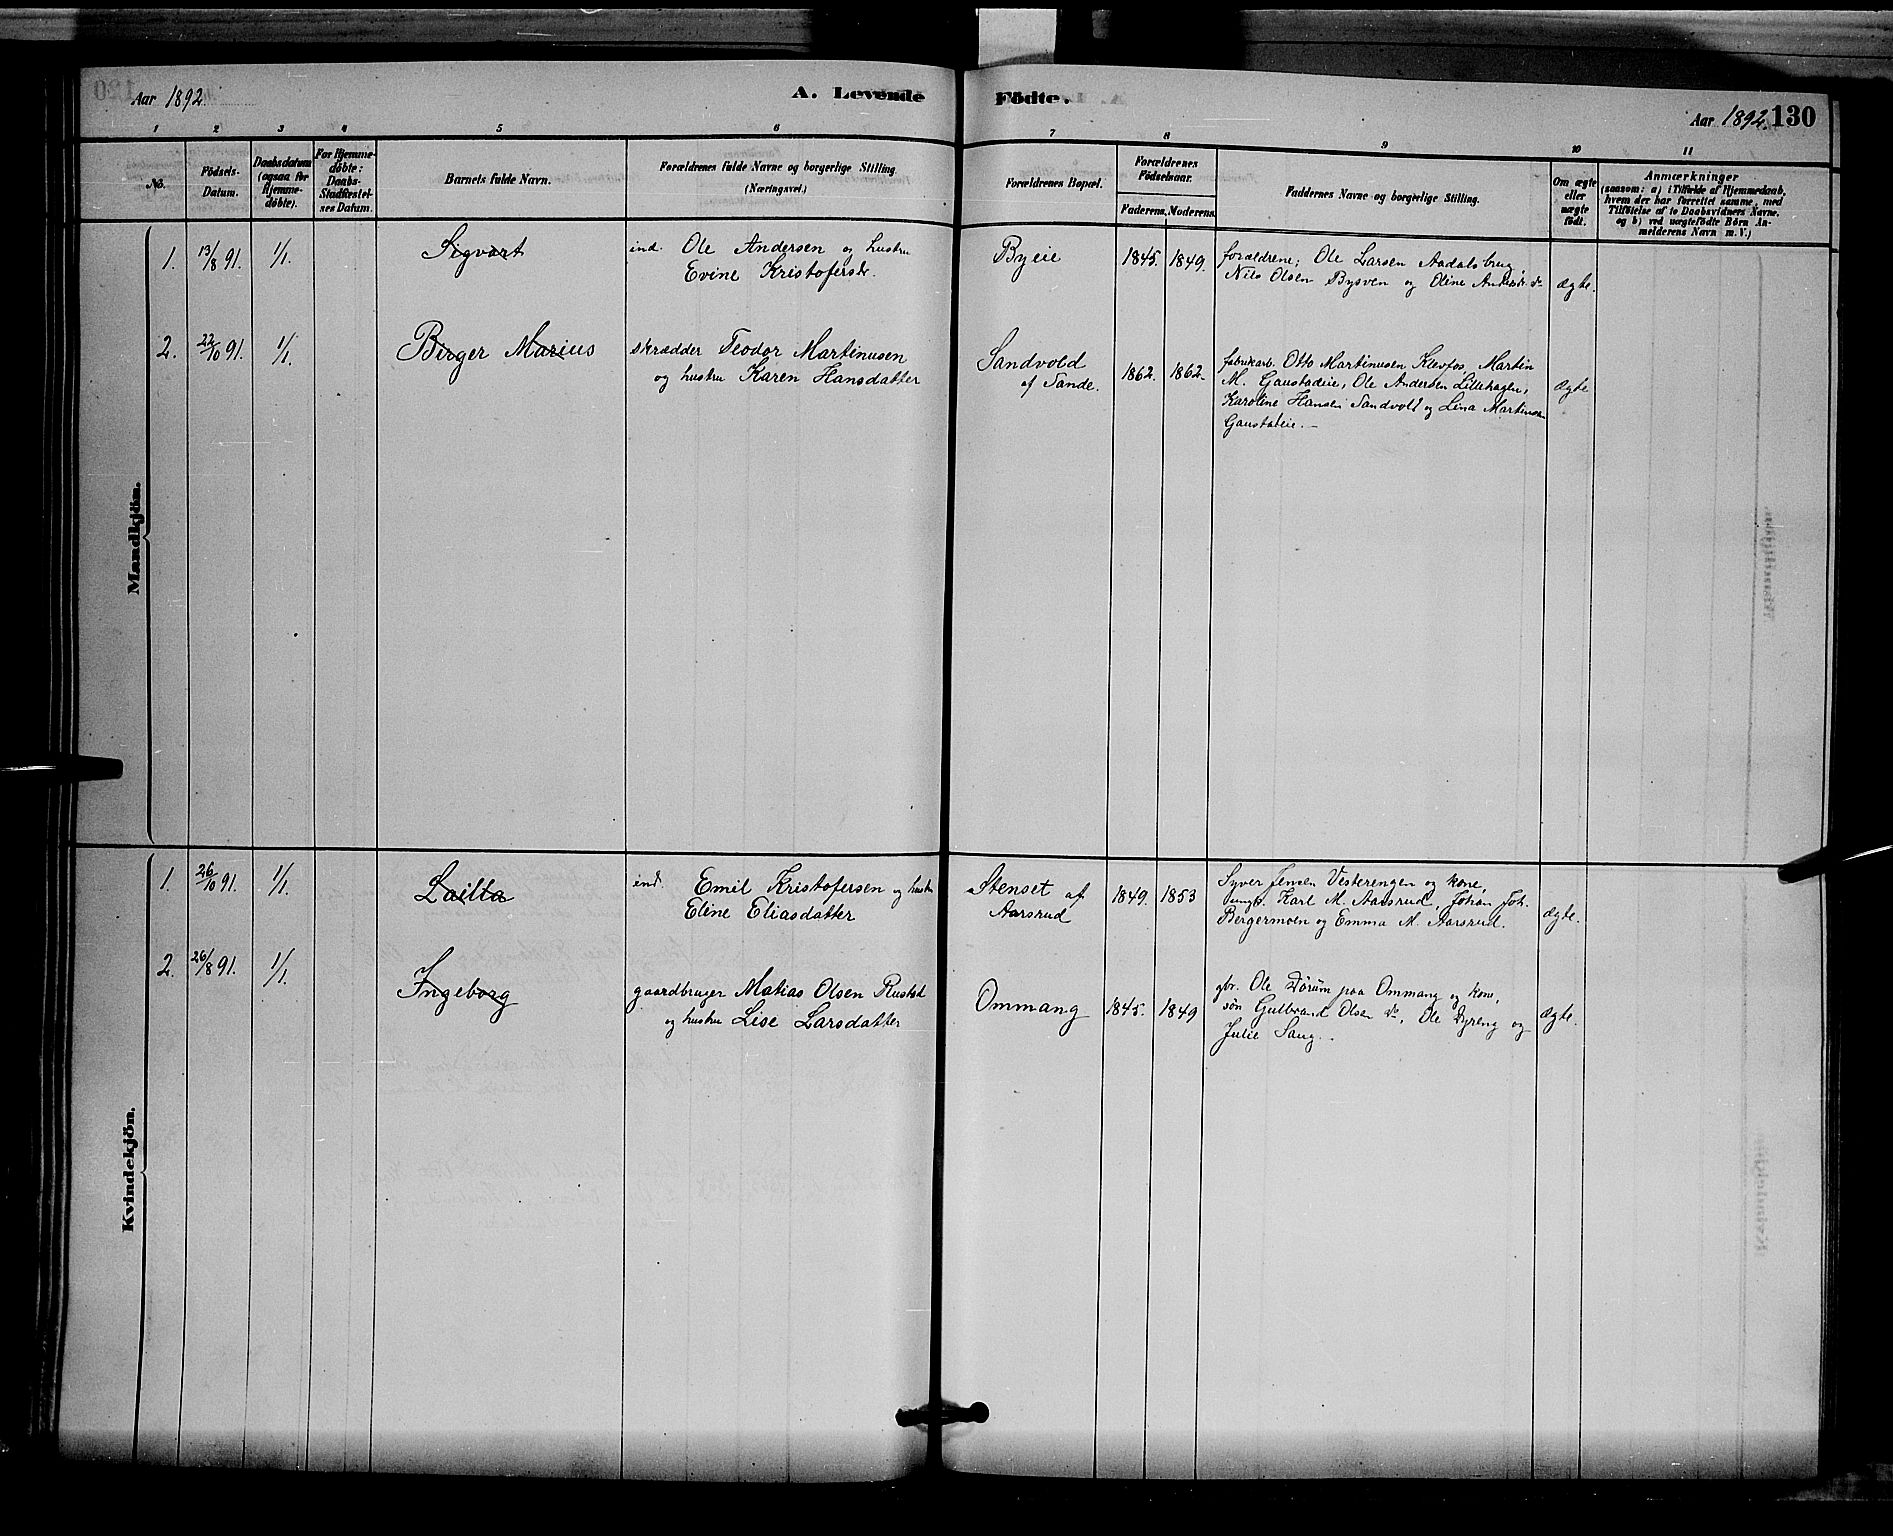 Aar 1892.
A. Levende Födte.
Aar 1892. 130
1 2 3 4 5 6 7 8 9 10 11
No.
Födsels-Datum.
Daabsdatum (ogsaa for Hjemme-døbte).
For Hjemme-døbte: Daabs-Stadfæstel-ses Datum.
Barnets fulde Navn.
Forældrenes fulde Navne og borgerlige Stilling (Næringsvei.)
Forældrenes Bopæl.
Forældrenes Födselsaar.
Faderens. Moderens.
Faddernes Navne og borgerlige Stilling.
Om ægte eller uægte födt.
Anmærkninger
(saasom: a) i Tilfælde af Hjemmedaab,
hvem der har forrettet samme, med
Tilföielse af to Daabsvidners Navne.
og b) ved uægtefödte Börn An-
melderens Navn m. V.)
Mandkjön.
1. 13/8 91. 1/1. Sigvart ind. Ole Andersen og hustru
Evine Kristofersdr.
Byeie 1845. 1849. forældrene; Ole Larsen Aadalsbrug
Nils Olsen Bysven og Oline Andersdr. do ægte.
2. 22/10 91. 1/1. Birger Marius skrædder Teodor Martinusen
og hustru Karen Hansdatter
Sandvold
af Sande. 1862. 1862. fabrikarb. Otto Martinusen Klevfos, Martin
M. Gaustadeie, Ole Andersen Lillehagen,
Karoline Hansen Sandvold og Lina Martinsen
Gaustadeie. ægte
Kvindekjön.
1. 26/10 91. 1/1. Lailla ind. Emil Kristofersen og hustru
Eline Eliasdatter
Stenset af
Aarsrud 1849. 1853 Syver Jensen Vesterengen og kone,
ungk. Karl M. Aarsrud, Johan Joh.
Bergermoen og Emma M. Aarsrud. ægte.
2. 26/8 91. 1/1. Ingeborg gaardbruger Matias Olsen Rustad
og hustru Lise Larsdatter
Ommang 1845. 1849 gbr. Ole Dørum paa Ommang og kone,
søn Gulbrand Olsen do, Ole Dyreng og
Julie Saug. ægte.